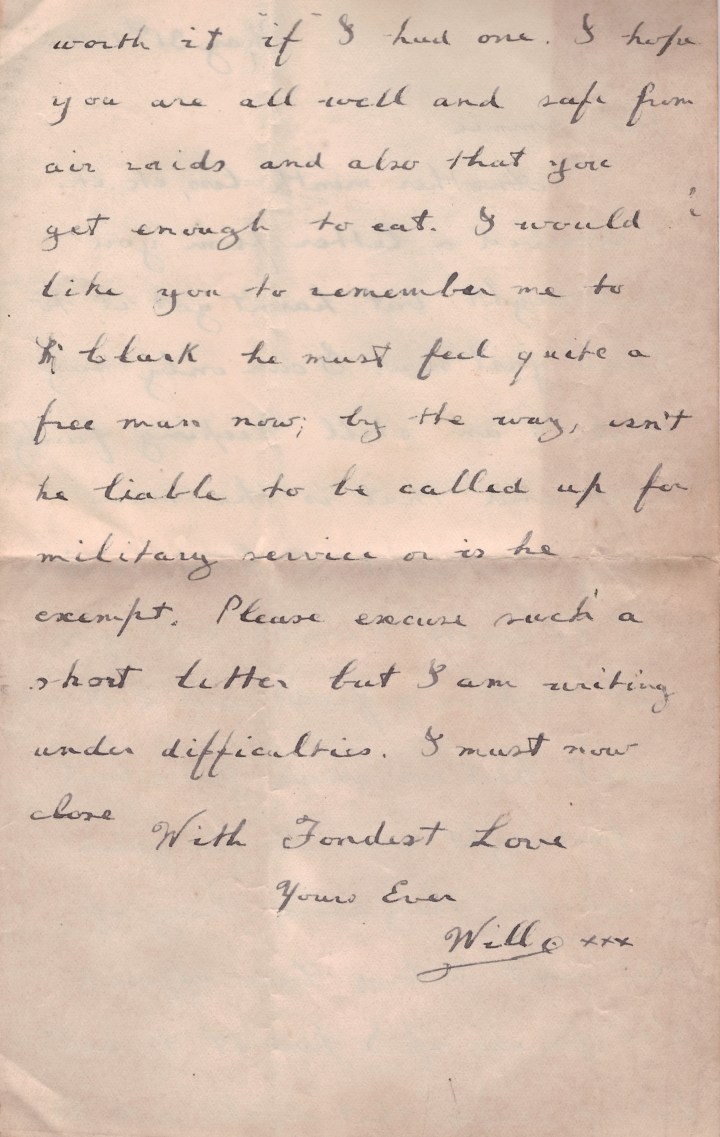 worth it "if" I had one. I hope
you are all well and safe from
air raids and also that you
get enough to eat. I would
like you to remember me to
Clark he must feel quite a
free man now; by the way, isn't
he liable to be called up for
military service or is he
exempt. Please excuse such a
short letter but I am writing
under difficulties. I must now
close
With Fondest Love
Yours Ever
Will xxx